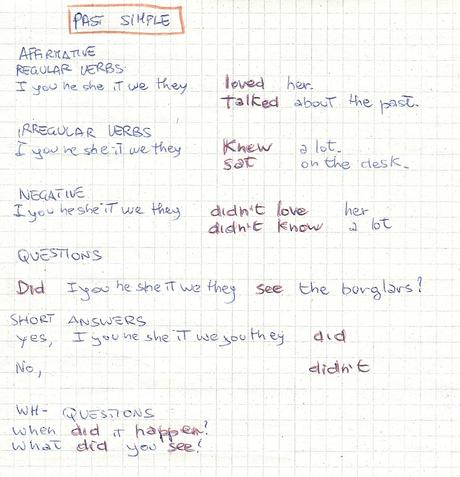 PAST SIMPLE
AFFIRMATIVE
REGULAR VERBS
I you he she it we they loved her.
Talked about the past.
IRREGULAR VERBS
I you he she it we they Knew a lot.
sat on the desk.
NEGATIVE
I you he she it we they didn't love her
didn't know a lot
QUESTIONS
Did I you he she it we they see the burglars?
SHORT ANSWERS
yes, I you he she it we you they did
No, didn't
WH- QUESTIONS
When did it happen?
What did you see?